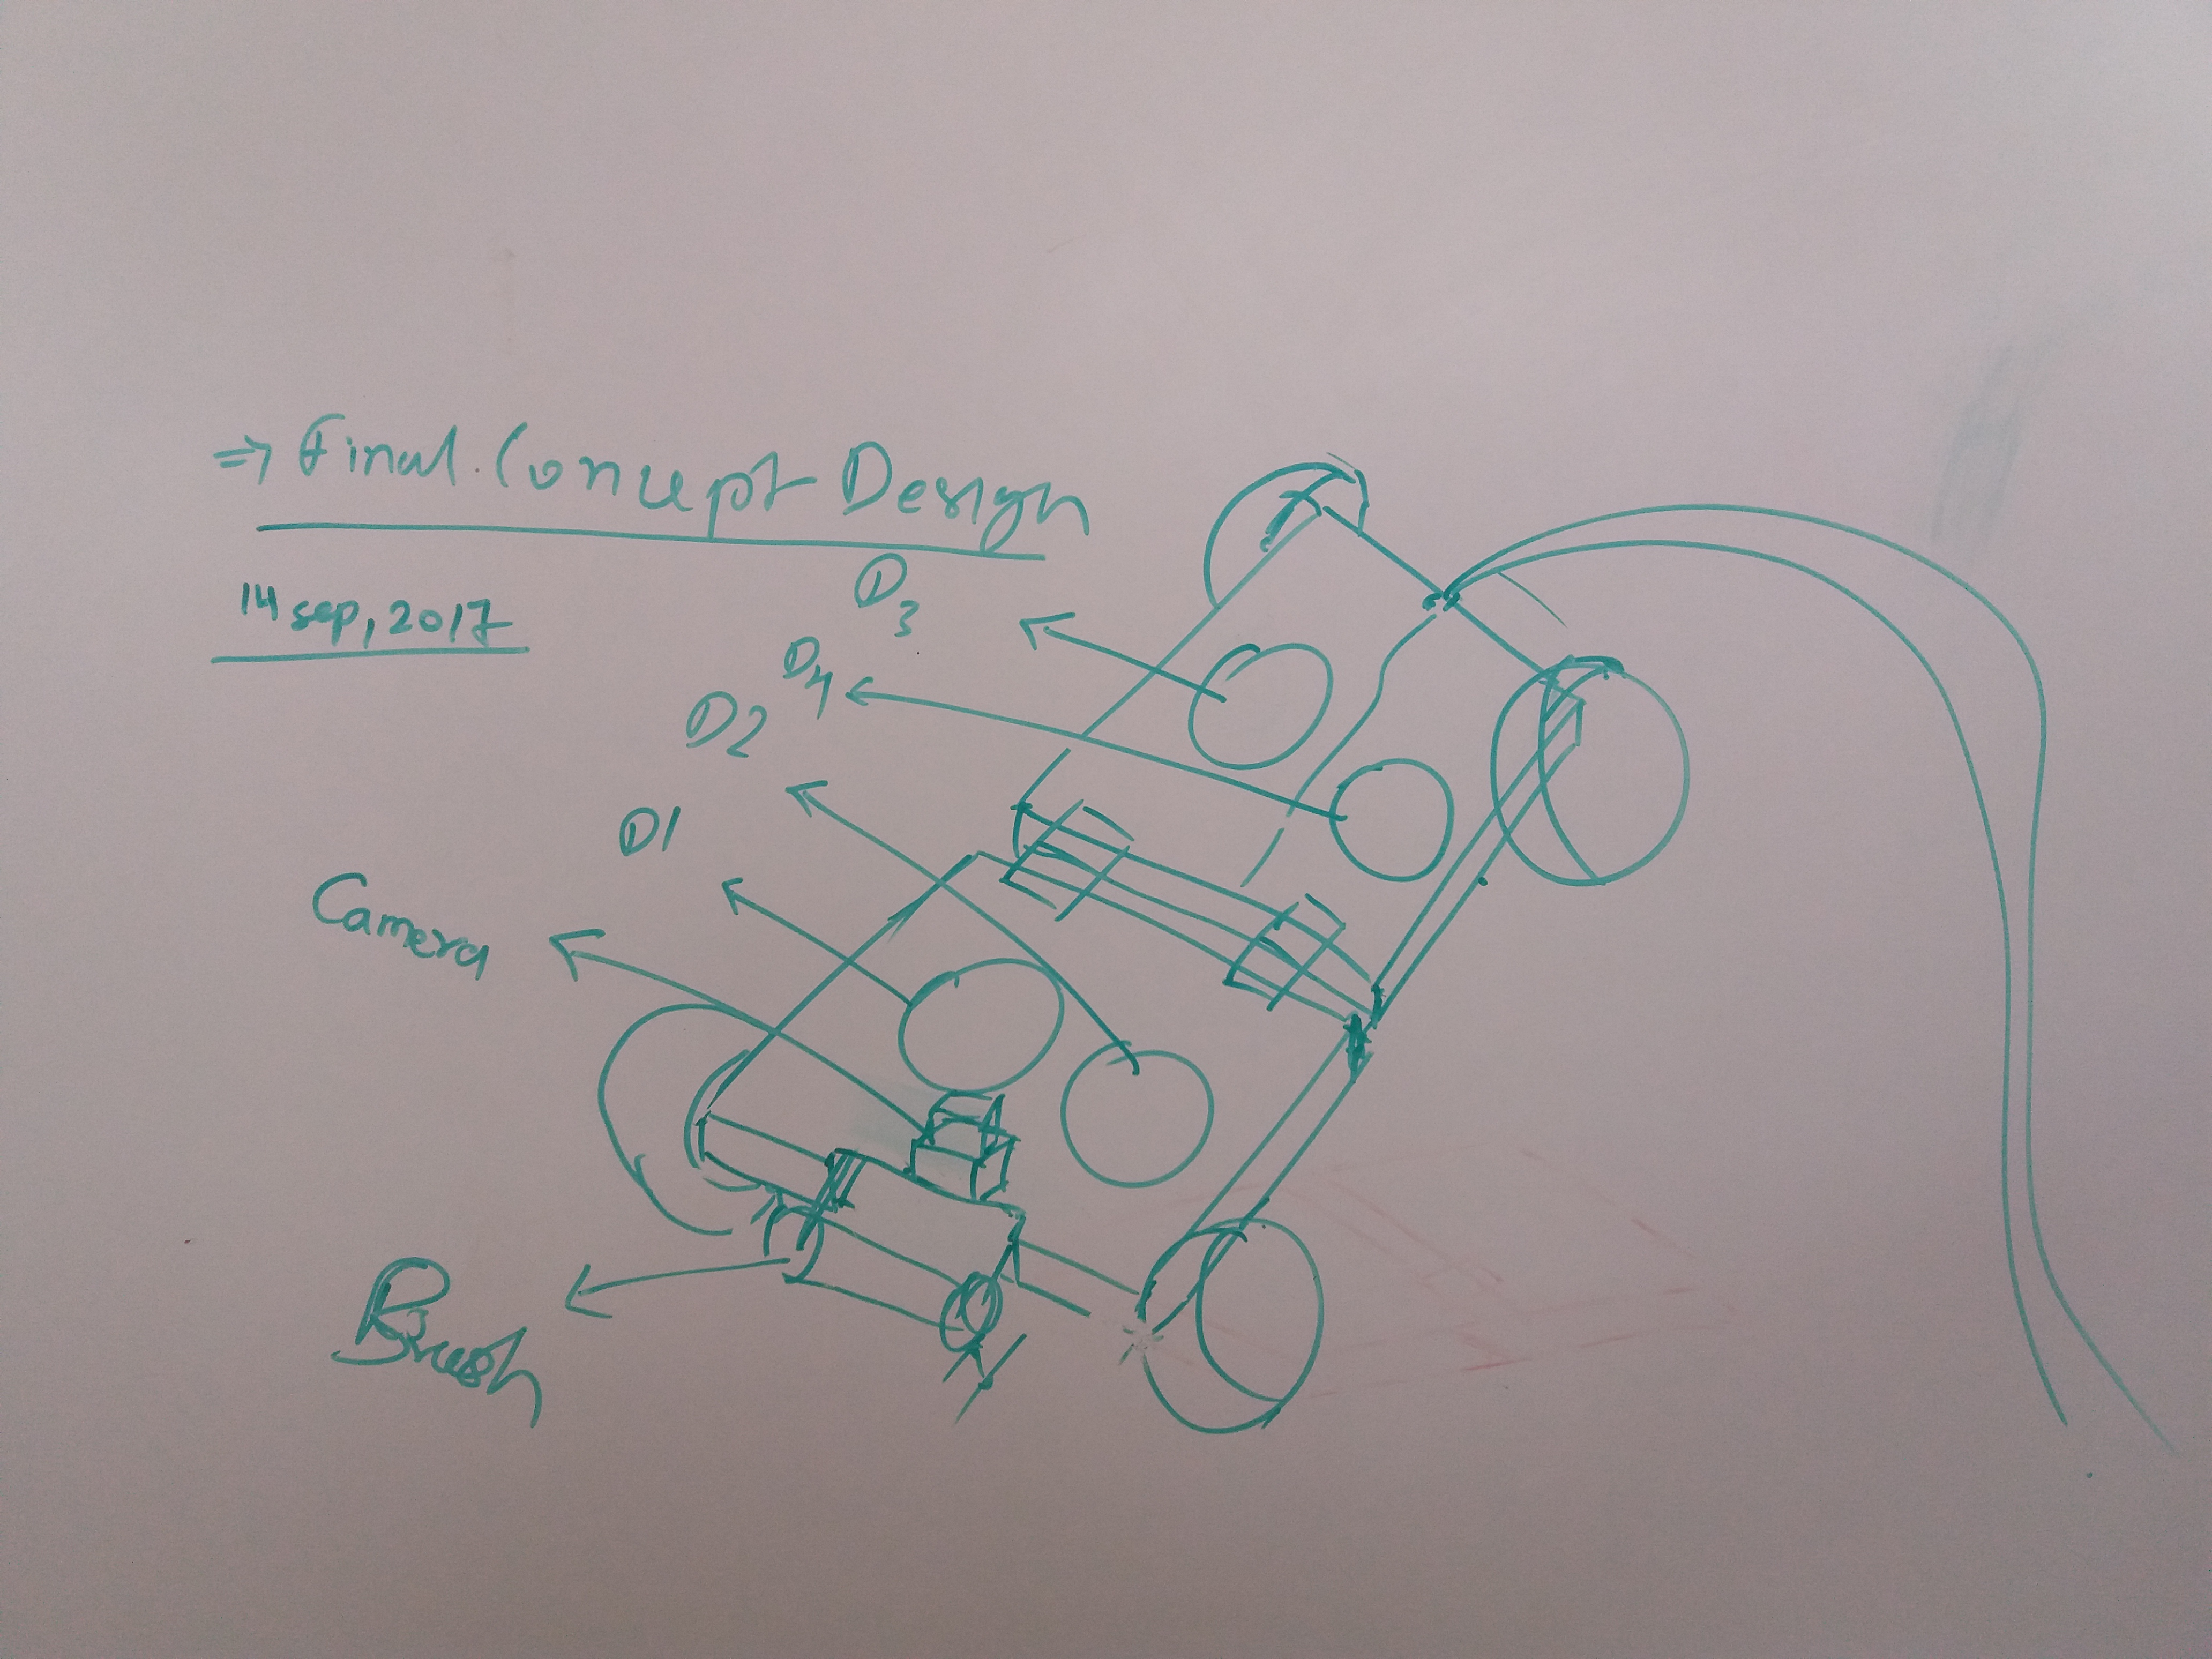 ⇒ Final Concept Design
14 sep, 2017
D3
D4
D2
D1
Camera
Brush